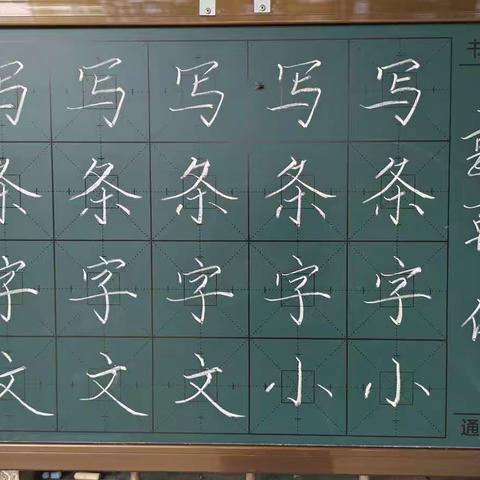 写写写写写
条条条条条
字字字字字
文文文小小
书
通